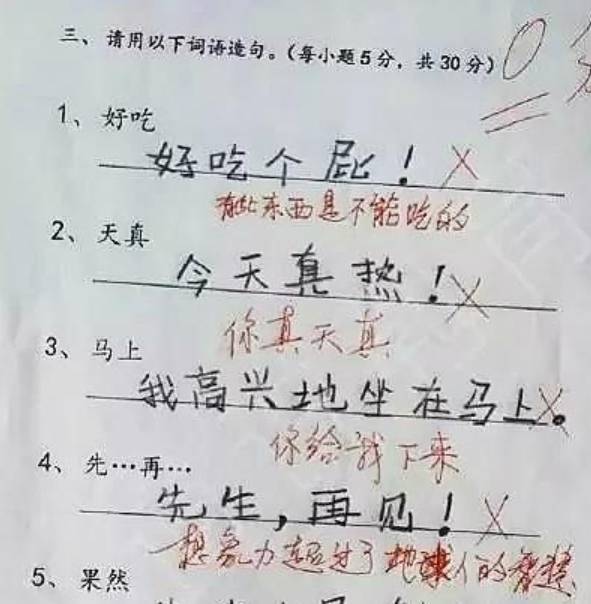 三、请用以下词语造句。(每小题5分，共30分) 0分
1、好吃
好吃个屁！
有些东西是不能吃的
2、天真
今天真热！
你真天真
3、马上
我高兴地坐在马上。
你给我下来
4、先…再…
先生，再见！
想象力超过了地球人的智慧
5、果然